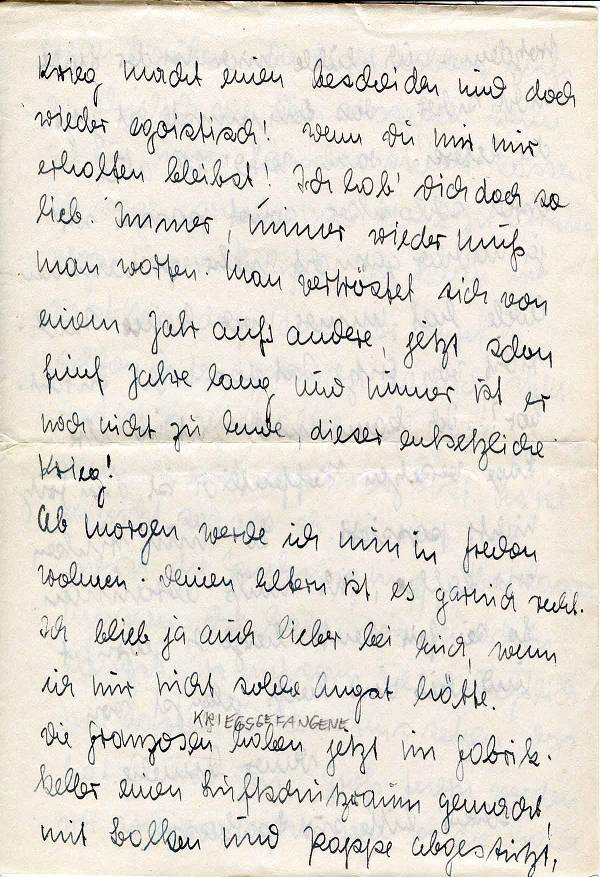 Krieg macht einen bescheiden und doch
wieder egoistisch! Wenn du mir nur
erhalten bleibst! Ich hab' Dich doch so
lieb. Immer, immer wieder muß
man warten. Man vertröstet sich von
einem Jahr aufs andere, jetzt schon
fünf Jahre lang und immer ist er
noch nicht zu Ende, dieser entsetzliche
Krieg!
Ab morgen werde ich nun in
wohnen. Deinen Eltern ist es garnich recht.
Ich blieb ja auch lieber bei Euch, wenn
ich nur nicht solche Angst hätte.
KRIEGSGEFANGENE
Die Franzosen haben jetzt im Fabrik-
keller einen Luftschutzraum gemacht,
mit Balken und Pappe abgestützt,